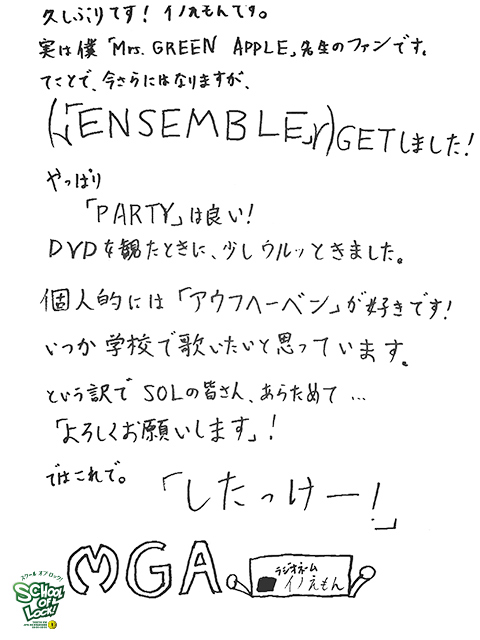 久しぶりです! イノえもんです。
実は僕「Mrs. GREEN APPLE」先生のファンです。
てことで、今さらにはなりますが、
「ENSEMBLE」GETしました!
やっぱり
「PARTY」は良い!
DVDを観たときに、少しウルッときました。
個人的には「アウフヘーベン」が好きです!
いつか学校で歌いたいと思っています。
という訳でSOLの皆さん、あらためて…
「よろしくお願いします」!
ではこれで。
「したっけー!」
MGA
ラジオネーム
イノえもん
スクール オブ ロック!
SCHOOL
OF
LOCK!